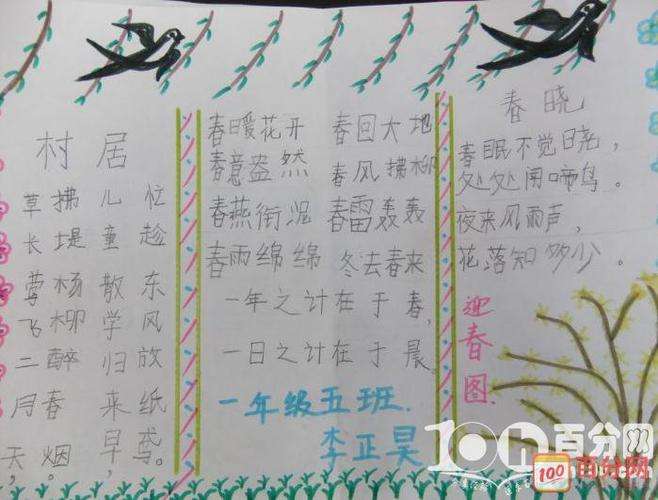 村居
草长莺飞二月天，
拂堤杨柳醉春烟。
儿童散学归来早，
忙趁东风放纸鸢。
春暖花开 春回大地
春意盎然 春风拂柳
春燕衔泥 春雷轰轰
春雨绵绵 冬去春来
一年之计在于春，
一日之计在于晨。
一年级五班.
李正昊
春晓
春眠不觉晓，
处处闻啼鸟。
夜来风雨声，
花落知多少。
迎春图.
100百分网
100百分网